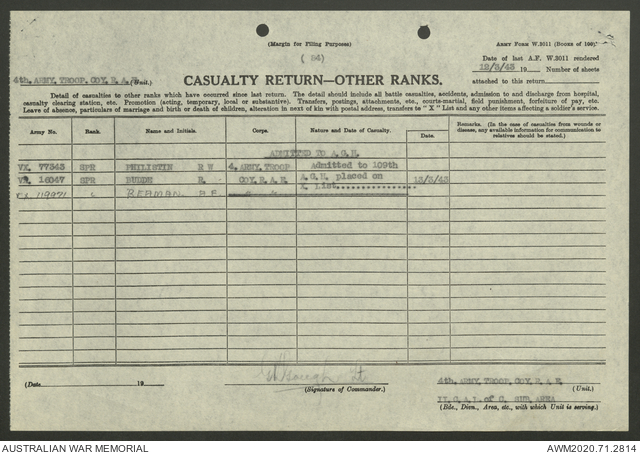 (Margin for Filing Purposes)
ARMY FORM W.3011 (BOOKS OF 100)
( 24)
Date of last A.F. W.3011 rendered
12/3/43 19 Number of sheets
4th. ARMY. TROOP. COY. R. A. E. (Unit.)
CASUALTY RETURN—OTHER RANKS.
attached to this return
Detail of casualties to other ranks which have occurred since last return. The detail should include all battle casualties, accidents, admission to and discharge from hospital,
casualty clearing station, etc. Promotion (acting, temporary, local or substantive). Transfers, postings, attachments, etc., courts-martial, field punishment, forfeiture of pay, etc.
Leave of absence, particulars of marriage and birth or death of children, alteration in next of kin with postal address, transfers to "X" List and any other items affecting a soldier's service.
Army No. Rank. Name and Initials. Corps. Nature and Date of Casualty. Date. REMARKS. (In the case of casualties from wounds or disease, any available information for communication to relatives should be stated.)
ADMITTED TO A.G.H.
VX 77343 SPR PHILISTIN R W 4. ARMY. TROOP Admitted to 109th
VX. 16047 SPR BUDDE R. COY. R. A. E. A.G.H. placed on 13/3/43
119971 BEAMAN A.E. " " X List
(Date 19 )
(Signature of Commander.)
4th. ARMY. TROOP. COY. R. A. E. (Unit.)
L. of C. SUB. AREA
(Bde., Divn., Area, etc., with which Unit is serving.)
AUSTRALIAN WAR MEMORIAL
AWM2020.71.2814